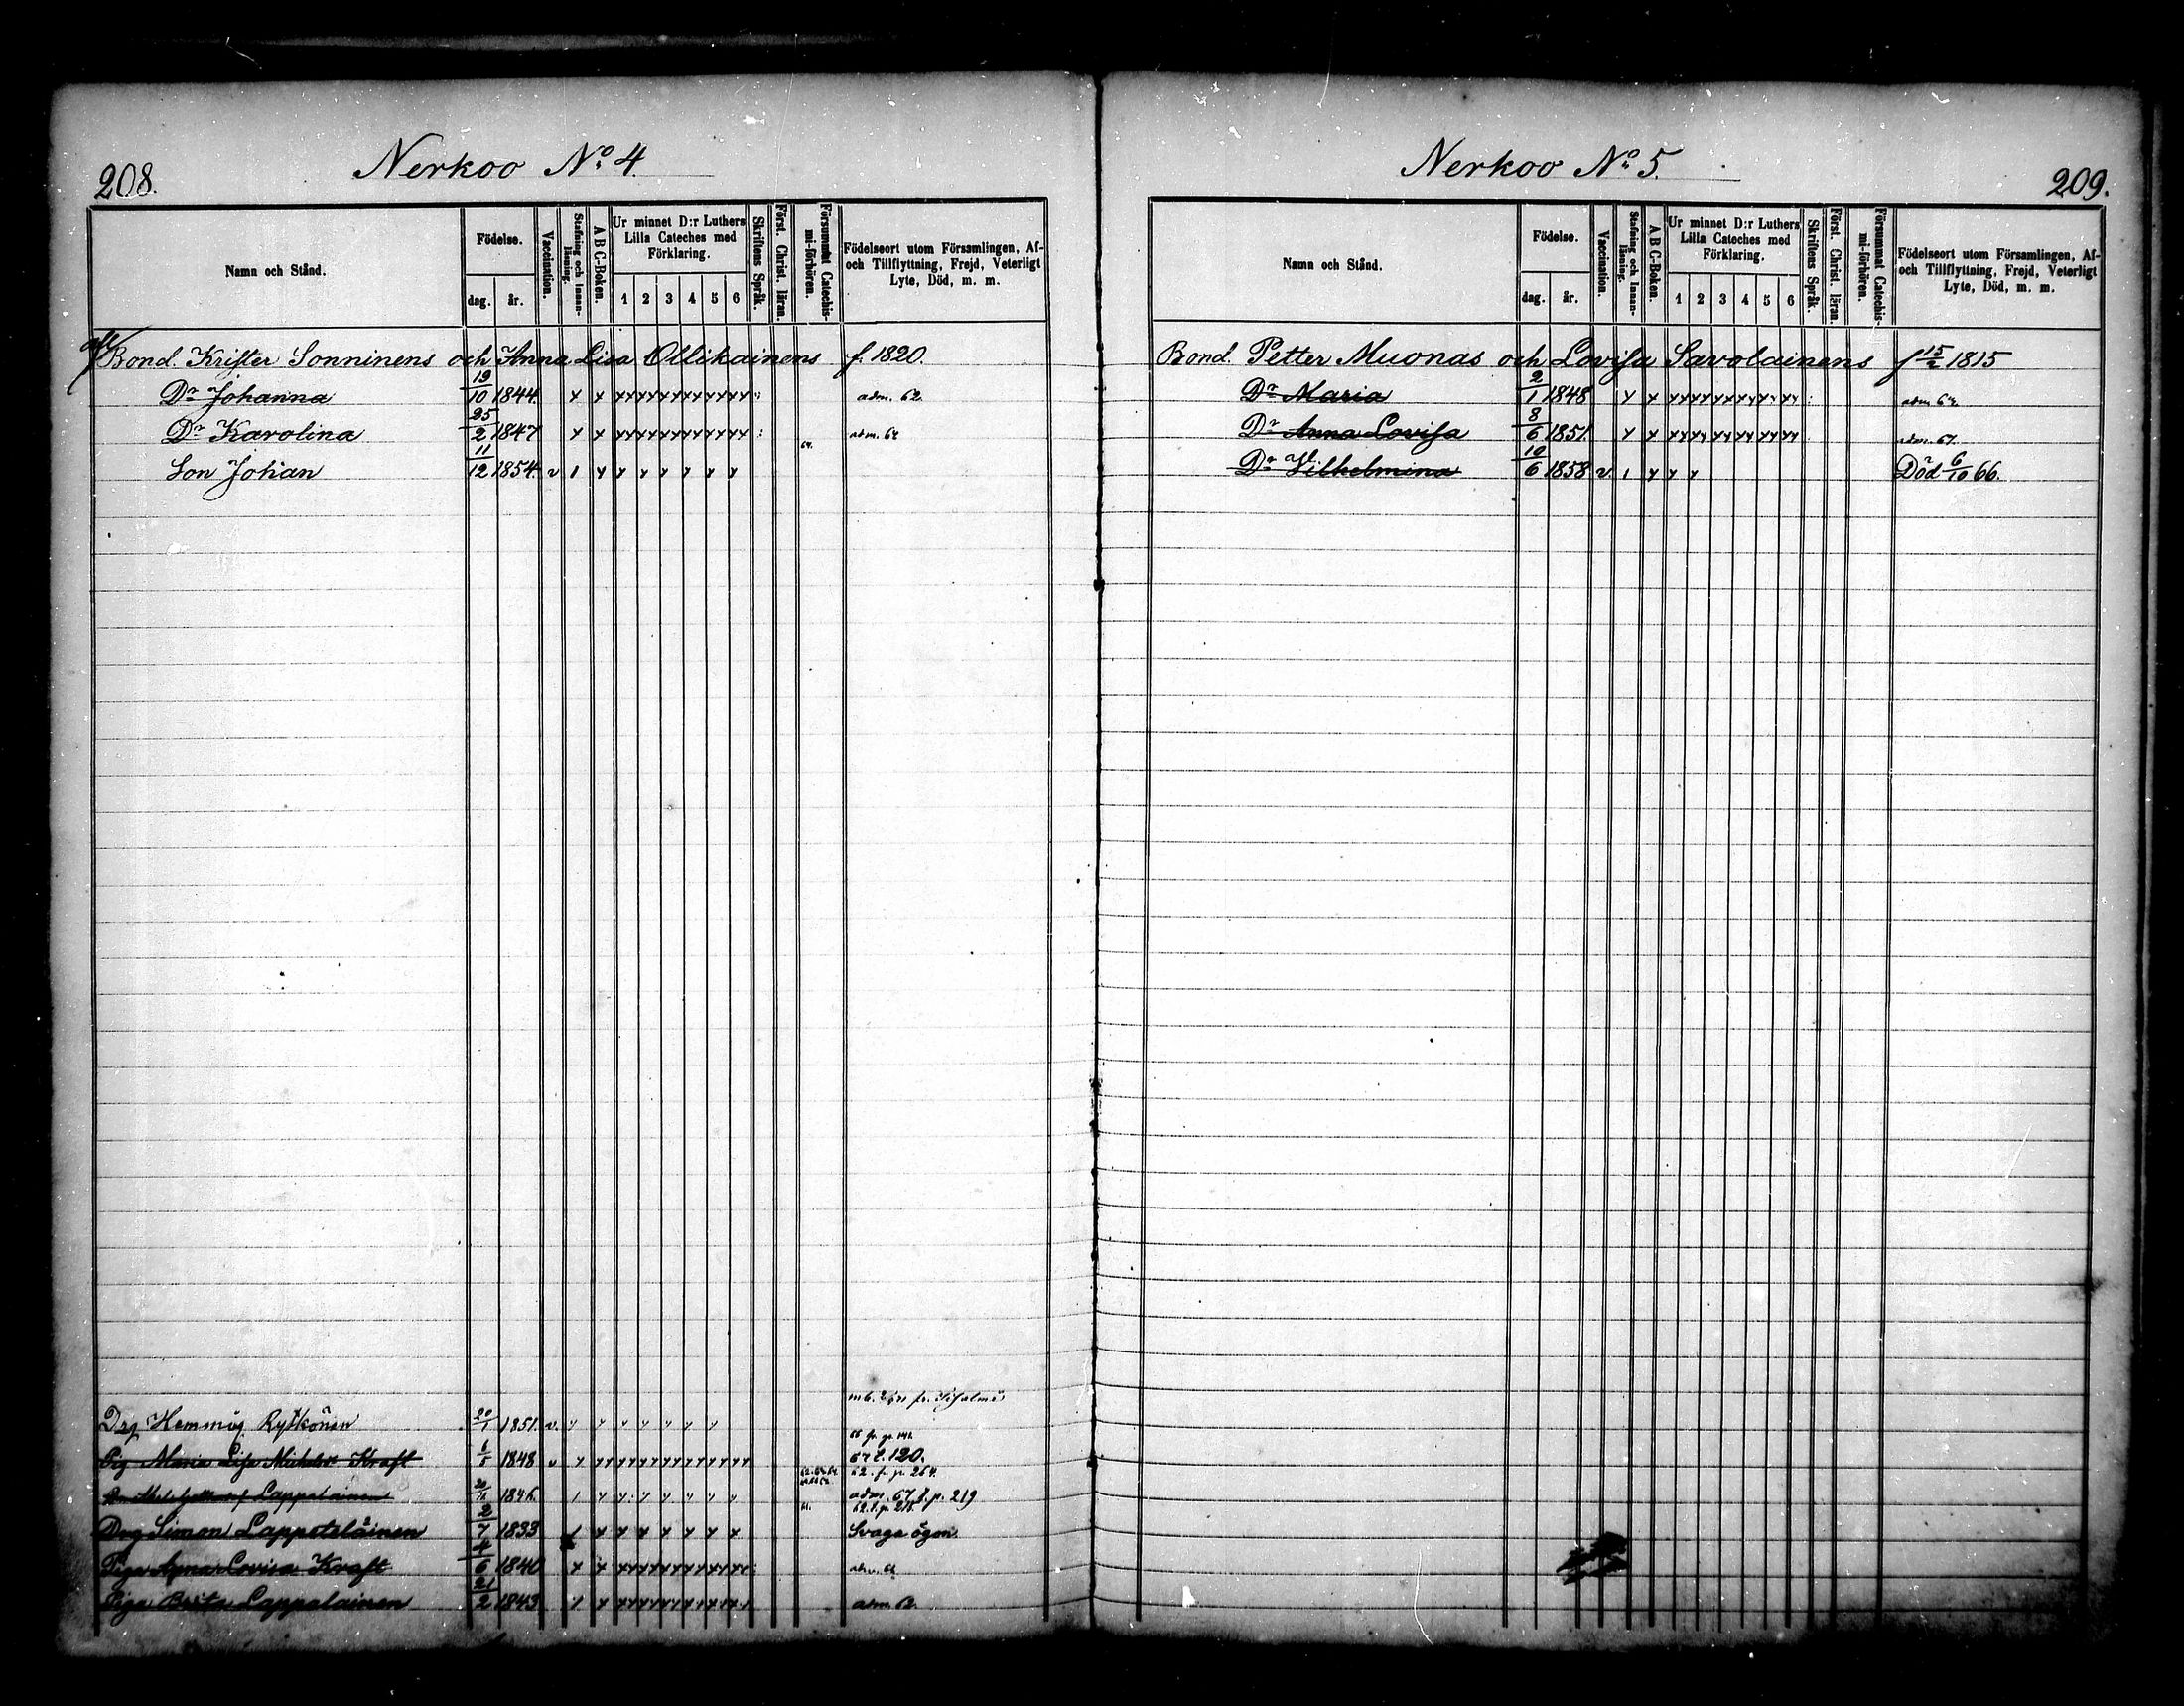 208.
Nerkoo No 4.
Namn och Stånd.
Födelse.
dag. år.
Vaccination.
Stafning och Innan-läsning.
A B C-Boken.
Ur minnet D:r Luthers Lilla Cateches med Förklaring.
1 2 3 4 5 6
Skriftens Språk.
Först. Christ. läran.
Försummat Catechis-mi-förhören.
Födelseort utom Församlingen, Af- och Tillflyttning, Frejd, Veterligt Lyte, Död, m. m.
Bond. Krister Sonninens och Anna Lisa Ollikainens f. 1820.
Dr Johanna 19/10 1844. adm. 62.
Dr Karolina 25/2 1847 64. adm. 64
Son Johan 11/12 1854. v
Hemmig Rytkönen 20/1 1851. v.
66 fr. p.
Pig Maria Lisa Kraft 6/5 1848 v 67 t. 120.
62. fr. p. 264.
Lappalainen 1846. adm. 67. t. p. 219
Drg Simon Lappeteläinen 2/7 1833 Svaga ögon.
Piga Anna Lovisa Kraft 4/6 1840
Piga Brita Lappalainen 21/2 1843 adm. 62.
Nerkoo No 5.
209.
Namn och Stånd.
Födelse.
dag. år.
Vaccination.
Stafning och Innan-läsning.
A B C-Boken.
Ur minnet D:r Luthers Lilla Cateches med Förklaring.
1 2 3 4 5 6
Skriftens Språk.
Först. Christ. läran.
Försummat Catechis-mi-förhören.
Födelseort utom Församlingen, Af- och Tillflyttning, Frejd, Veterligt Lyte, Död, m. m.
Bond. Petter Muonas och Lovisa Savolainens f 15/2 1815
Dr Maria 2/1 1848 adm. 64.
Dr Anna Lovisa 8/6 1851. adm. 67.
Dr Vilhelmina 10/6 1858 v. Död 6/10 66.